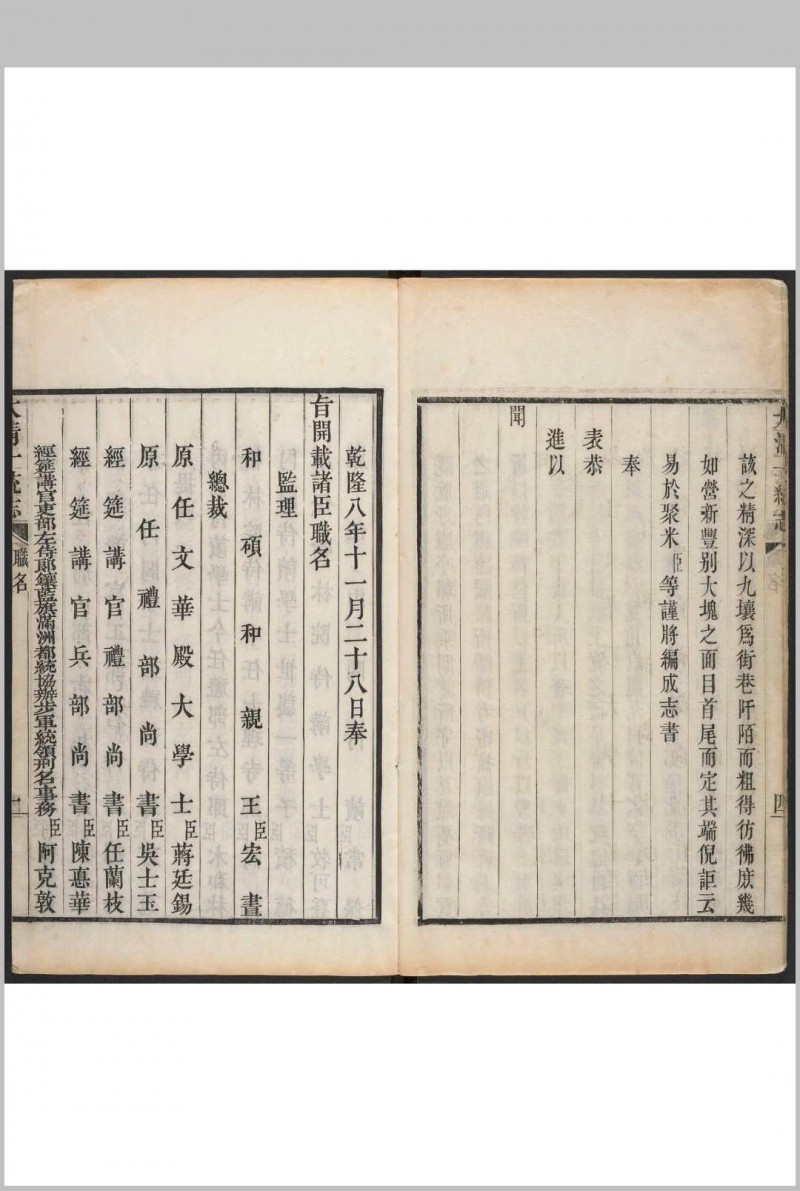 該之精深以九壤爲街巷阡陌而粗得彷彿庶幾
如營新豐别大塊之面目首尾而定其端倪詎云
易於聚米臣等謹將編成志書
奉
表恭
進以
聞
四
乾隆八年十一月二十八日奉
旨開載諸臣職名
監理
和碩和親王臣宏晝
總裁
原任文華殿大學士臣蔣廷錫
原任禮部尚書臣吳士玉
經筵講官禮部尚書臣任蘭枝
經筵講官兵部尚書臣陳悳華
經筵講官吏部左侍郎鑲藍旗滿洲都統協辦步軍統領刑名事務臣阿克敦
大清一統志
職名
一